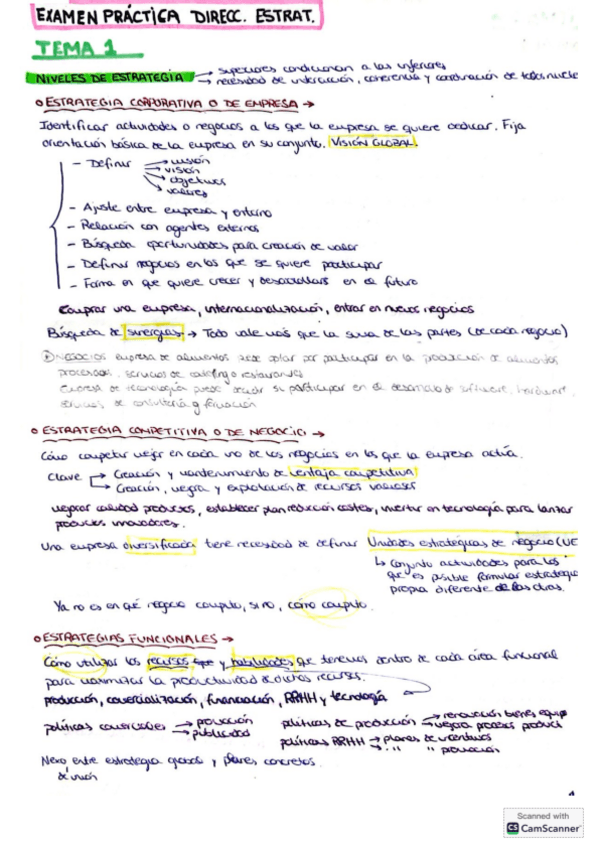 EXAMEN PRÁCTICA DIRECC. ESTRAT.
TEMA 1
NIVELES DE ESTRATEGIA → superiores condicionan a las inferiores
→ necesidad de interacción, coherencia y coordinación de todos
o ESTRATEGIA CORPORATIVA O DE EMPRESA →
Identificar actividades o negocios a los que la empresa se quiere dedicar. Fija
orientación básica de la empresa en su conjunto. VISIÓN GLOBAL.
- Definir → misión
→ visión
→ objetivos
→ valores
- Ajuste entre empresa y entorno
- Relación con agentes externos
- Búsqueda oportunidades para creación de valor
- Definir negocios en los que se quiere participar
- Forma en que quiere crecer y desarrollars en el futuro
Comprar una empresa, internacionalización, entrar en nuevos negocios
Búsqueda de sinergias → Todo vale más que la suma de las partes (de cada negocio)
NEGOCIOS empresa de alimentos puede optar por participar en la producción de alimentos
procesados, servicios de catering o restaurantes
Empresa de tecnología puede decidir si participar en el desarrollo de software, hardware,
servicios de consultoría y formación
o ESTRATEGIA COMPETITIVA O DE NEGOCIO →
Cómo competir mejor en cada uno de los negocios en los que la empresa actúa.
Clave → Creación y mantenimiento de ventaja competitiva
→ Creación, mejora y explotación de recursos valiosos
mejorar calidad productos, establecer plan reducción costes, invertir en tecnología para lanzar
productos innovadores.
Una empresa diversificada tiene necesidad de definir Unidades estratégicas de negocio (UE
↳ conjunto actividades para las
que es posible formular estrategia
propia diferente de las otras.
Ya no es en qué negocio compito, si no, cómo compito.
o ESTRATEGIAS FUNCIONALES →
Cómo utilizar los recursos y habilidades que tenemos dentro de cada área funcional
para maximizar la productividad de dichos recursos.
producción, comercialización, financiación, RRHH y tecnología
políticas comerciales → promoción
→ publicidad
políticas de producción → renovación bienes equip
→ mejora procesos product
políticas RRHH → planes de incentivos
→ " " " promoción
Nexo entre estrategia global y planes concretos.
de unión
1
Scanned with
CS CamScanner